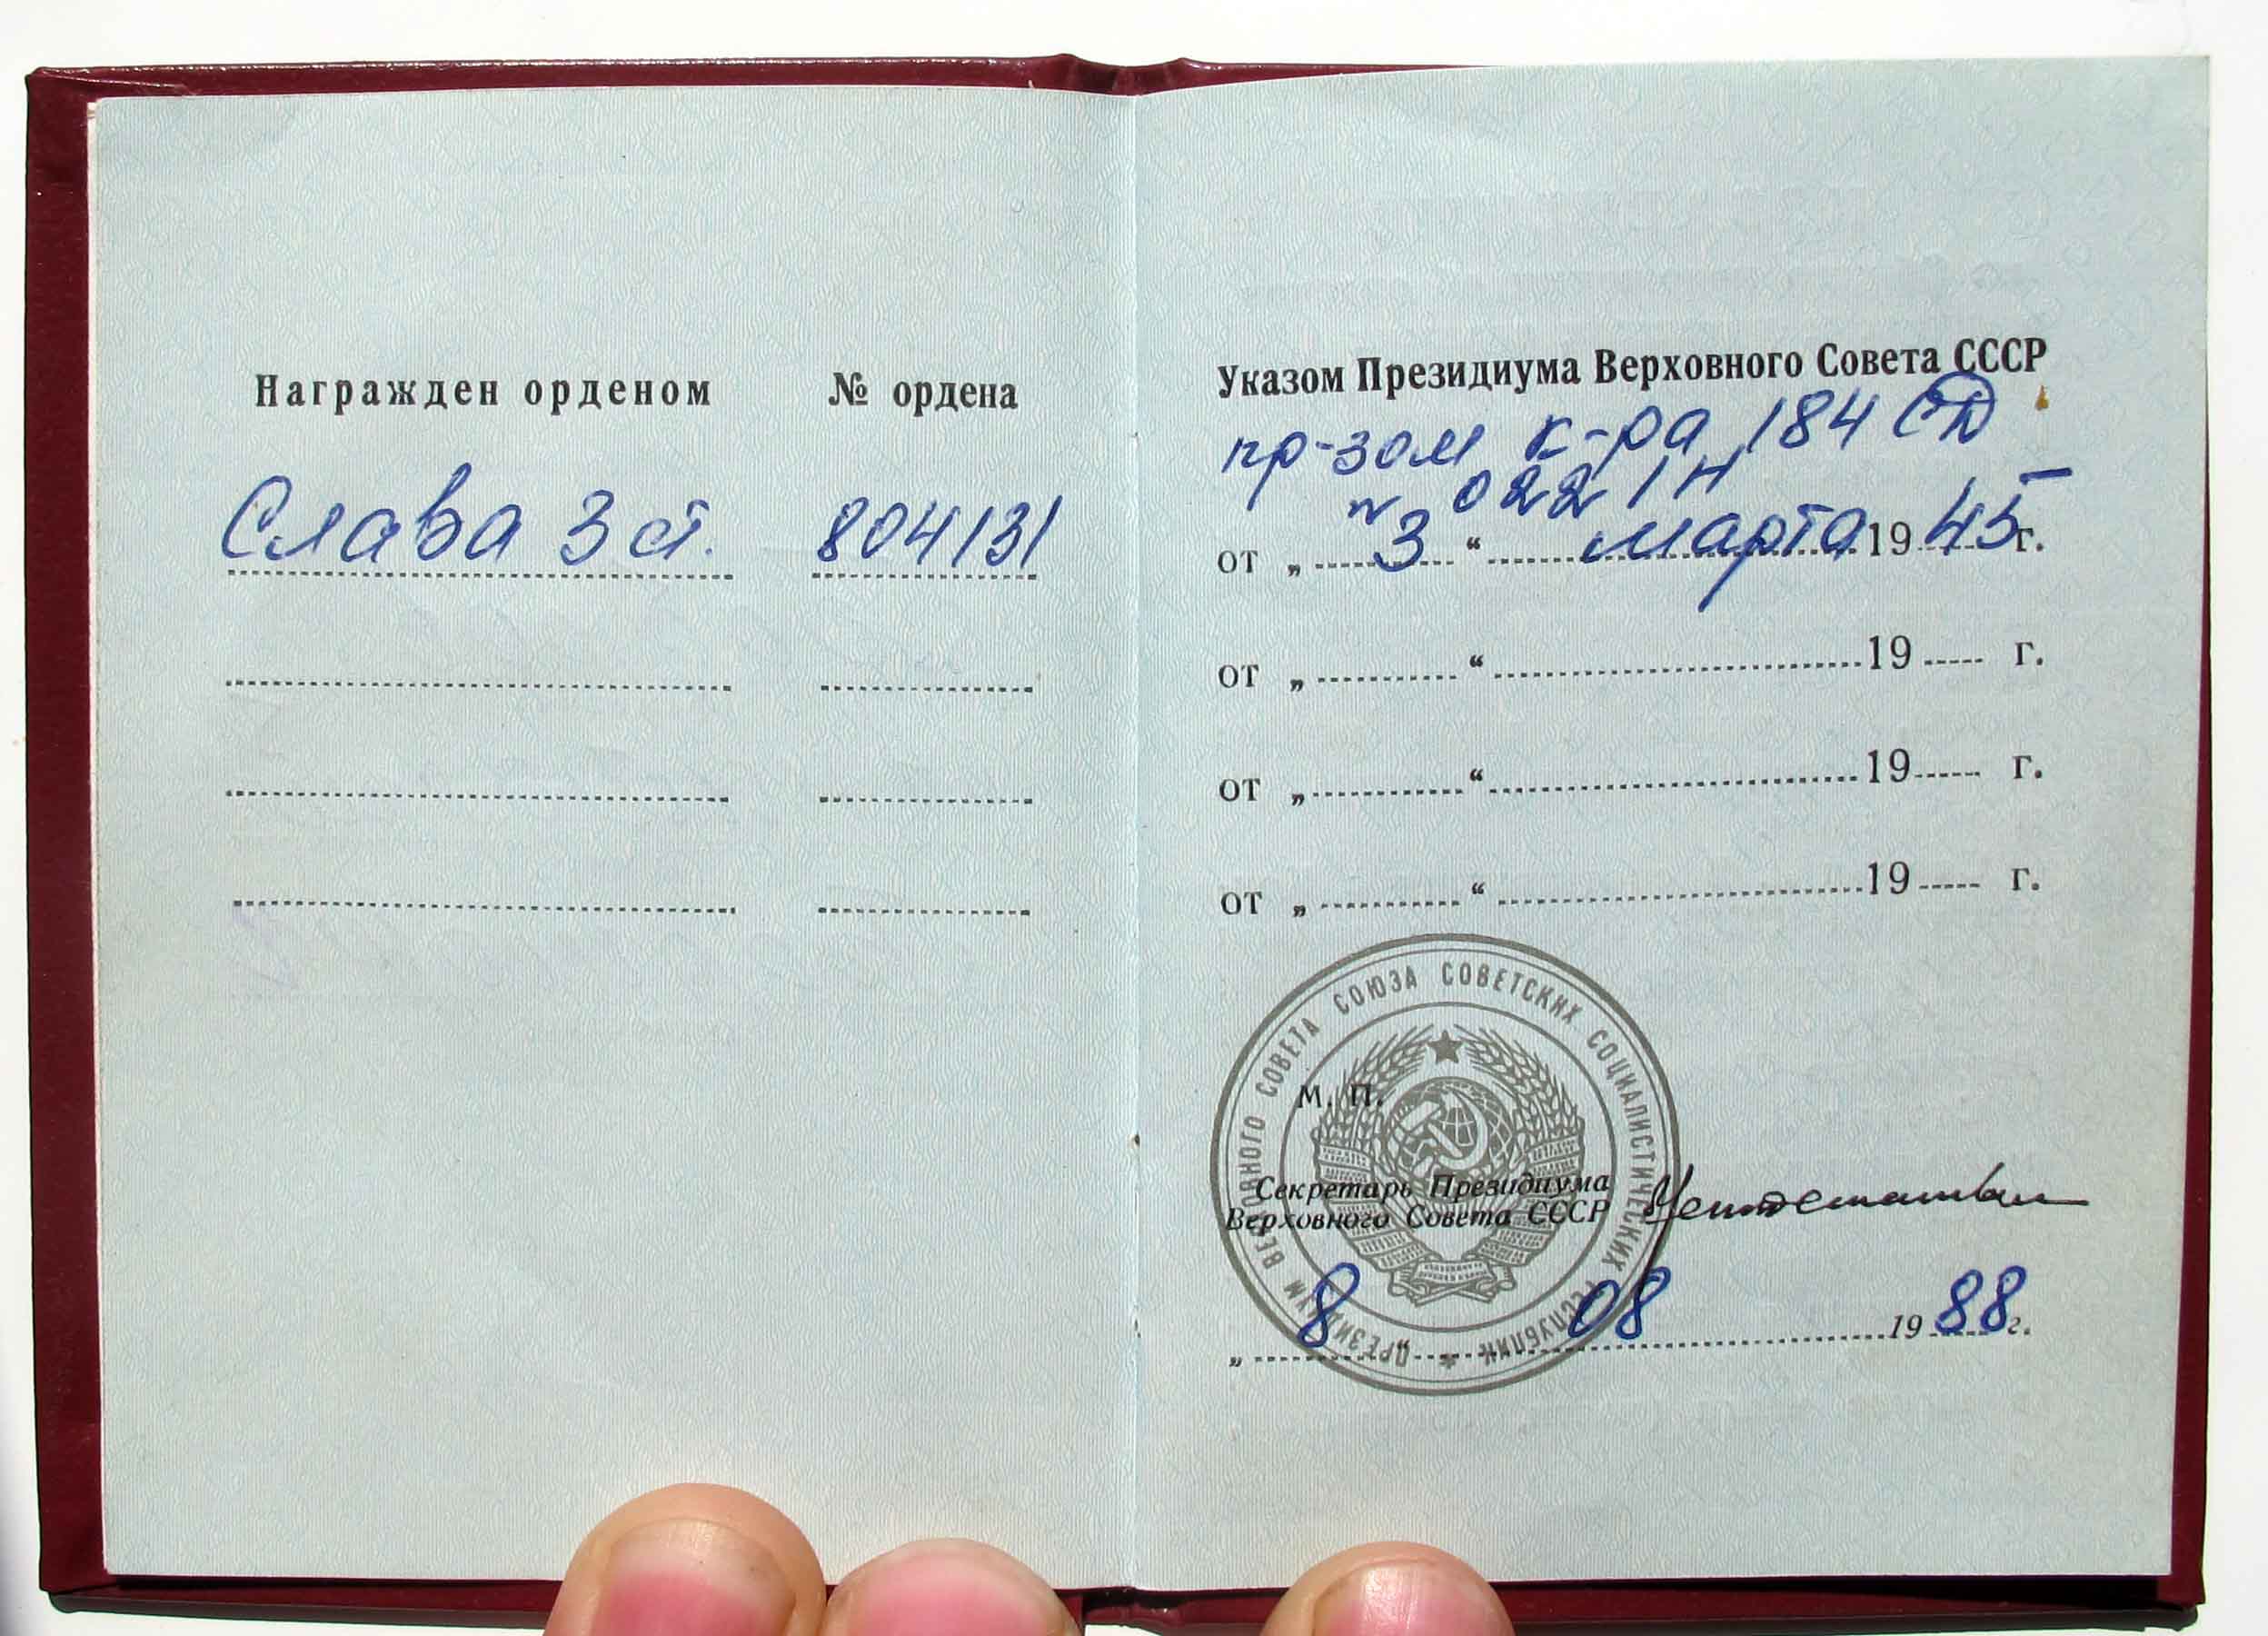 Награжден орденом № ордена
Слава 3 ст. 804131
Указом Президиума Верховного Совета СССР
пр-зом к-ра 184 СД
№ 022/н
от „ 3 “ марта 1945 г.
от „ “ 19 г.
от „ “ 19 г.
от „ “ 19 г.
ПРЕЗИДИУМ ВЕРХОВНОГО СОВЕТА СОЮЗА СОВЕТСКИХ СОЦИАЛИСТИЧЕСКИХ РЕСПУБЛИК *
М. П.
Секретарь Президиума
Верховного Совета СССР
„ 8 “ 08 1988 г.